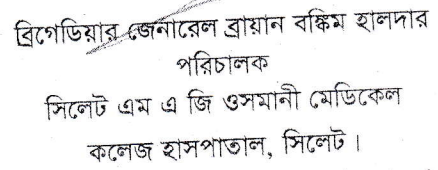 ব্রিগেডিয়ার জেনারেল ব্রায়ান বঙ্কিম হালদার
পরিচালক
সিলেট এম এ জি ওসমানী মেডিকেল
কলেজ হাসপাতাল, সিলেট।